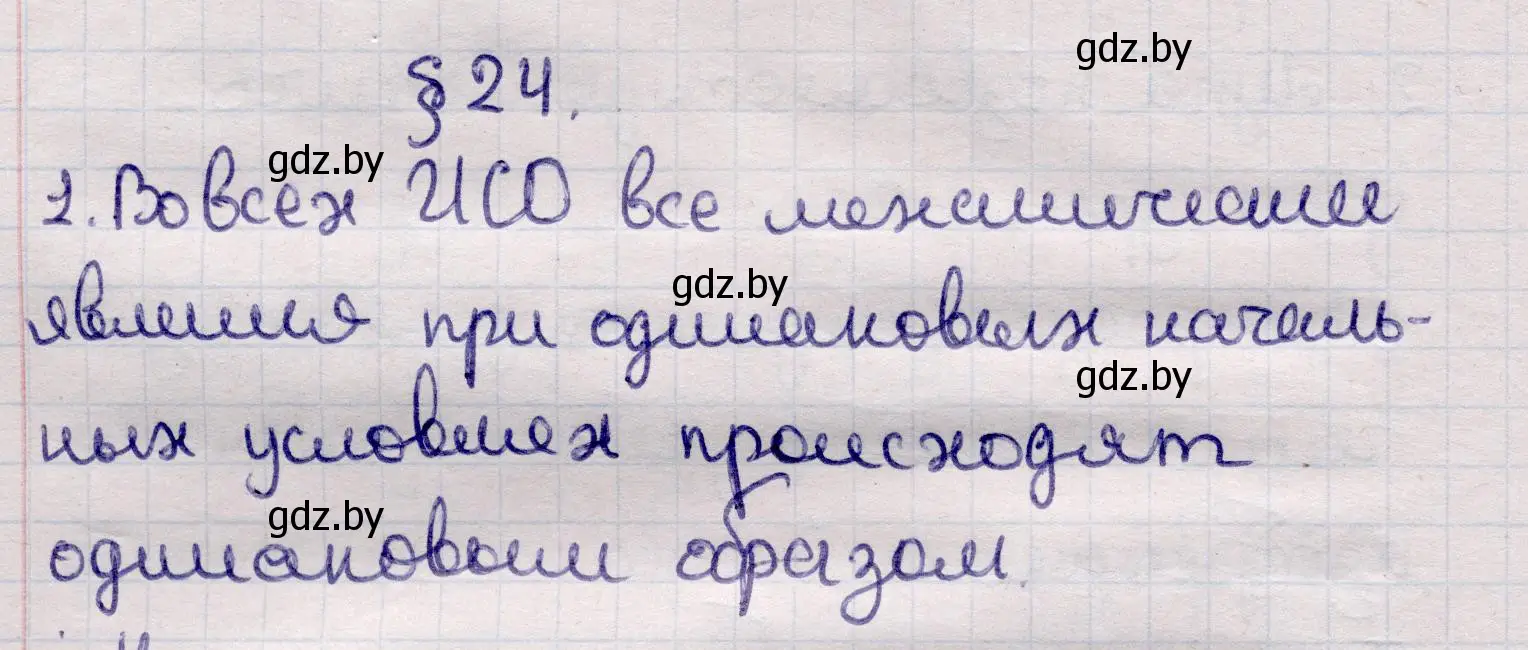 gdz.by
§ 24.
gdz.by
1. Во всех ИСО все механические
gdz.by
явления при одинаковых началь-
gdz.by
ных условиях происходят
gdz.by
одинаковым образом.